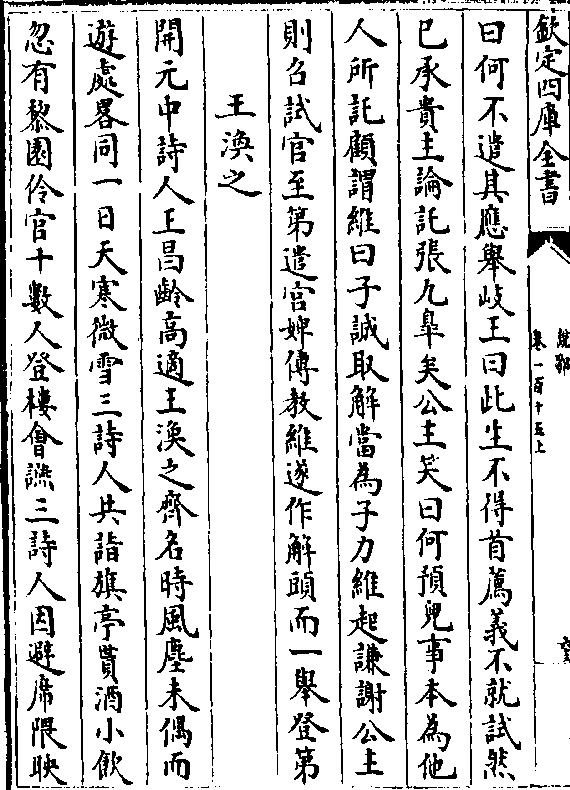 欽定四庫全書
說郛
卷一百十五上
曰何不遣其應舉岐王曰此生不得首薦義不就試然
已承貴主論託張九臯矣公主笑曰何預兒事本為他
人所託顧謂維曰子誠取解當為子力維起謙謝公主
則召試官至第遣宫婢傳教維遂作解頭而一舉登第
王渙之
開元中詩人王昌齡高適王渙之齊名時風塵未偶而
遊處畧同一日天寒微雪三詩人共詣旗亭貰酒小飲
忽有黎園伶官十數人登樓㑹讌三詩人因避席隈映